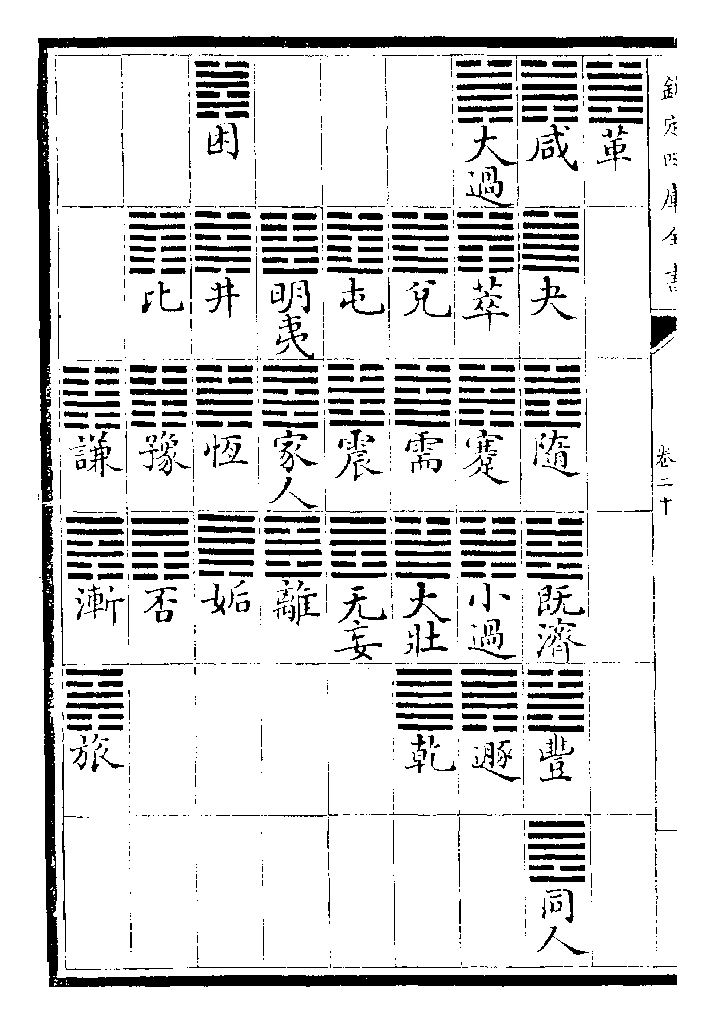 欽定四庫全書
卷二十
革
咸 夬 隨 既濟 豐 同人
大過 萃 蹇 小過 遯
兌 需 大壯 乾
屯 震 无妄
明夷 家人 離
困 井 恆 姤
比 豫 否
謙 漸 旅